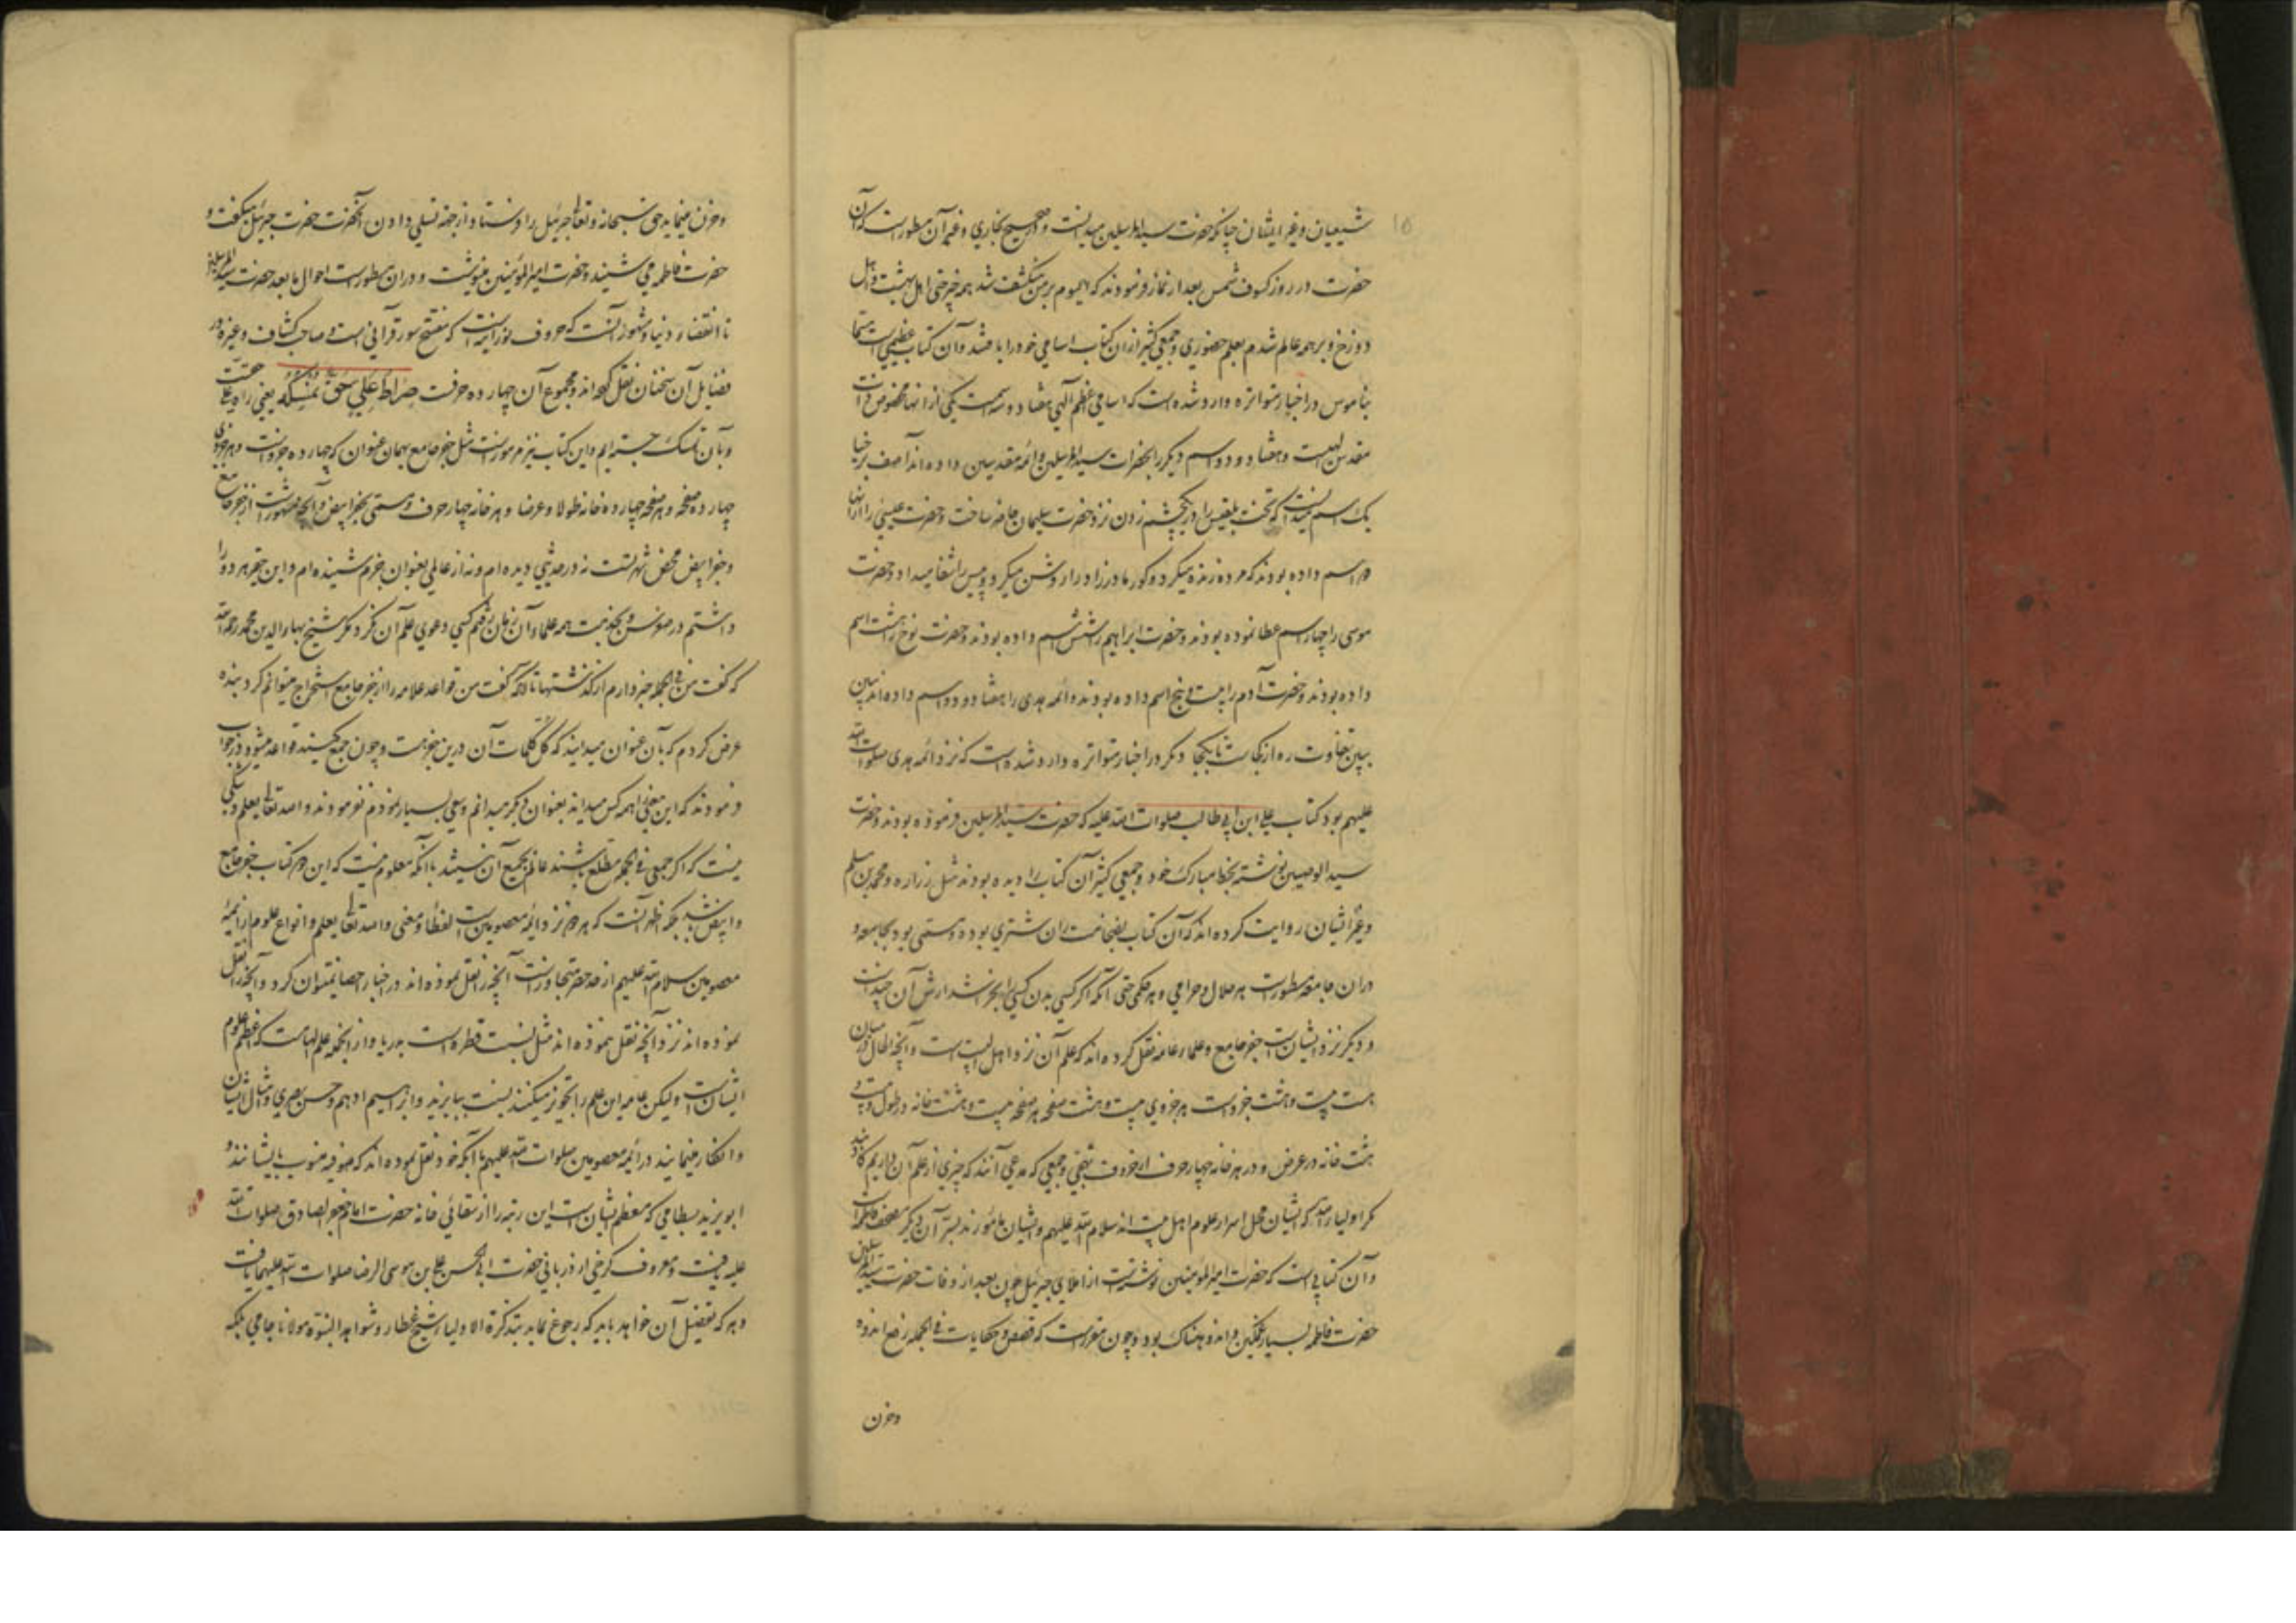 ۱۵
شیعیان و غیر ایشان چنانکه حضرت سید المرسلین میدانست و در صحیح بخاری و غیر آن مسطورست که آن
حضرت در روز کسوف شمس بعد از نماز فرمودند که الیوم بر من منکشف شد همه چیز حتی اهل بهشت و اهل
دوزخ و بر همه عالم شدم بعلم حضوری و جمعی کثیر از آن کتاب اسامی خود را یافتند و آن کتاب عظیمی است مسما
بناموس و در اخبار متواتره وارد شده است که اسامی اعظم الهی هفتاد و سه است یکی از آنها مخصوص ذات
مقدس الهیست و هفتاد و دو اسم دیگر را بحضرات سید المرسلین و ائمه مقدسین داده اند آصف برخیا
یک اسم میدانست که تخت بلقیس را در یکچشم زدن نزد حضرت سلیمان حاضر ساخت و حضرت عیسی را از آنها
دو اسم داده بودند که مرده زنده میکرد و کور مادرزاد را روشن میکرد و پیس را شفا میداد و حضرت
موسی را چهار اسم عطا نموده بودند و حضرت ابراهیم را شش اسم داده بودند و حضرت نوح را هشت اسم
داده بودند و حضرت آدم را بیست و پنج اسم داده بودند و ائمه هدی را هفتاد و دو اسم داده اند ببین
ببین تفاوت ره از کجاست تا بکجا و دیگر در اخبار متواتره وارد شده است که نزد ائمه هدی صلوات الله
علیهم بود کتاب علی ابن ابی طالب صلوات الله علیه که حضرت سید المرسلین فرموده بودند و حضرت
سید الوصیین نوشته بخط مبارک خود و جمعی کثیر آن کتاب را دیده بودند مثل زراره و محمد بن مسلم
و غیر ایشان روایت کرده اند که آن کتاب بضخامت ران شتری بوده و مسمی بود بجامعه و
در آن جامعه مسطورست هر حلال و حرامی و هر حکمی حتی آنکه اگر کسی بدن کسی را بخراشد ارش آن چیست
و دیگر نزد ایشانست جفر جامع و علماء عامه نقل کرده اند که علم آن نزد اهل البیت است و آنچه الحال در میان
هست بیست و هشت جزو است هر جزوی بیست و هشت صفحه هر صفحه بیست و هشت خانه در طول و بیست و
هشت خانه در عرض و در هر خانه چهار حرف از حروف تهجی و جمعی که مدعی آنند که چیزی از علم آن داریم کاذبند
مگر اولیاء الله که ایشان محل اسرار علوم اهل بیت اند سلام الله علیهم و ایشان مامورند بستر آن دیگر مصحف فاطمه است
و آن کتابی است که حضرت امیر المومنین نوشته است از املای جبرئیل چون بعد از وفات حضرت سید المرسلین
حضرت فاطمه بسیار غمگین و اندوهناک بود و چون مقررست که قصص و حکایات فی الجمله رفع اندوه
و حزن
و حزن مینماید حق سبحانه و تعالی جبرئیل را فرستاد از جهة تسلی دادن آنحضرت حضرت جبرئیل میگفت و
حضرت فاطمه می شنید و حضرت امیر المؤمنین مینوشت و در آن مسطورست احوال ما بعد حضرت سید المرسلین
تا انقضاء دنیا و مشهور آنست که حروف نورانیست که مفتتح سور قرآنی است و صاحب کشاف و غیره در
فضایل آن سخنان نقل کرده اند و مجموع آن چهارده حرفست صِرَاطُ عَلِيٍّ حَقٌّ نُمْسِكُهُ یعنی راه علی حقست
و بآن تمسک جسته ایم و این کتاب نیز مرموزست مثل جفر جامع بهمان عنوان که چهارده جزوست و هر جزوی
چهارده صفحه و هر صفحه چهارده خانه طولا و عرضا و هر خانه چهار حرف و مسمی بجفر ابیض و آنچه مشهورست از جفر جامع
و جفر ابیض محض شهرتست نه در حدیثی دیده ام و نه از عالمی بعنوان جزم شنیده ام و این حقیر هر دو را
داشتم در صغر سن و بخدمت همه علماء آن زمان رفتم کسی دعوی علم آن نکرد مگر شیخ بهاء الدین محمد رحمه الله
که گفت من فی الجمله خبر دارم از گذشتها تا آنکه گفت من قواعد علامه را از جفر جامع استخراج میتوانم کرد بنده
عرض کردم که بآن عنوان میدانید که کل کلمات آن درین جفر هست و چون جمع کنید قواعد میشود در جواب
فرمودند که این معنی را همه کس میداند بعنوان دیگر میدانم و سعی بسیار نمودم نفرمودند و الله تعالی یعلم و شکی
نیست که اگر جمعی فی الجمله مطلع باشند عالم بجمیع آن نیستند با آنکه معلوم نیست که این دو کتاب جفر جامع
و ابیض باشد بلکه اظهر آنست که هر دو نزد ائمه معصومین است لفظا و معنی و الله تعالی یعلم و انواع علوم ائمه
معصومین سلام الله علیهم از حد حصر متجاوزست آنچه نقل نموده اند در اخبار احصا نمیتوان کرد و آنچه را نقل
نموده اند نزد آنچه نقل ننموده اند مثل نسبت قطره است بدریا و از آنجمله علم الهامست که اعظم علوم
ایشانست ولیکن عامه این علم را تجویز میکنند نسبت ببایزید و ابراهیم ادهم و حسن بصری و امثال ایشان
و انکار مینمایند در ائمه معصومین صلوات الله علیهم با آنکه خود نقل نموده اند که صوفیه منسوب بایشانند و
ابو یزید بسطامی که معظم ایشان است این رتبه را از سقائی خانه حضرت امام جعفر الصادق صلوات الله
علیه یافت و معروف کرخی از دربانی حضرت ابی الحسن علی بن موسی الرضا صلوات الله علیهما یافت
و هر که تفصیل آن خواهد باید که رجوع نماید بتذکرة الاولیاء شیخ عطار و شواهد النبوة مولانا جامی بلکه